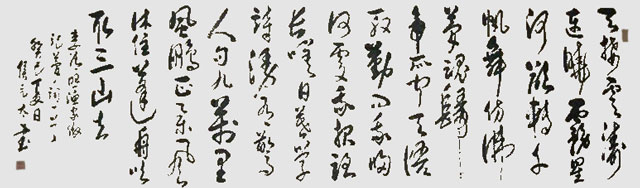 天接雲濤
連曉霧星
河欲轉千
帆舞彷彿
夢魂歸
帝所聞天語
殷勤問我歸
何處我報路
長嗟日暮學
詩謾有驚
人句九萬里
風鵬正舉風
休住蓬舟吹
取三山去
李清照漁家傲
記夢詞一首
癸巳夏日